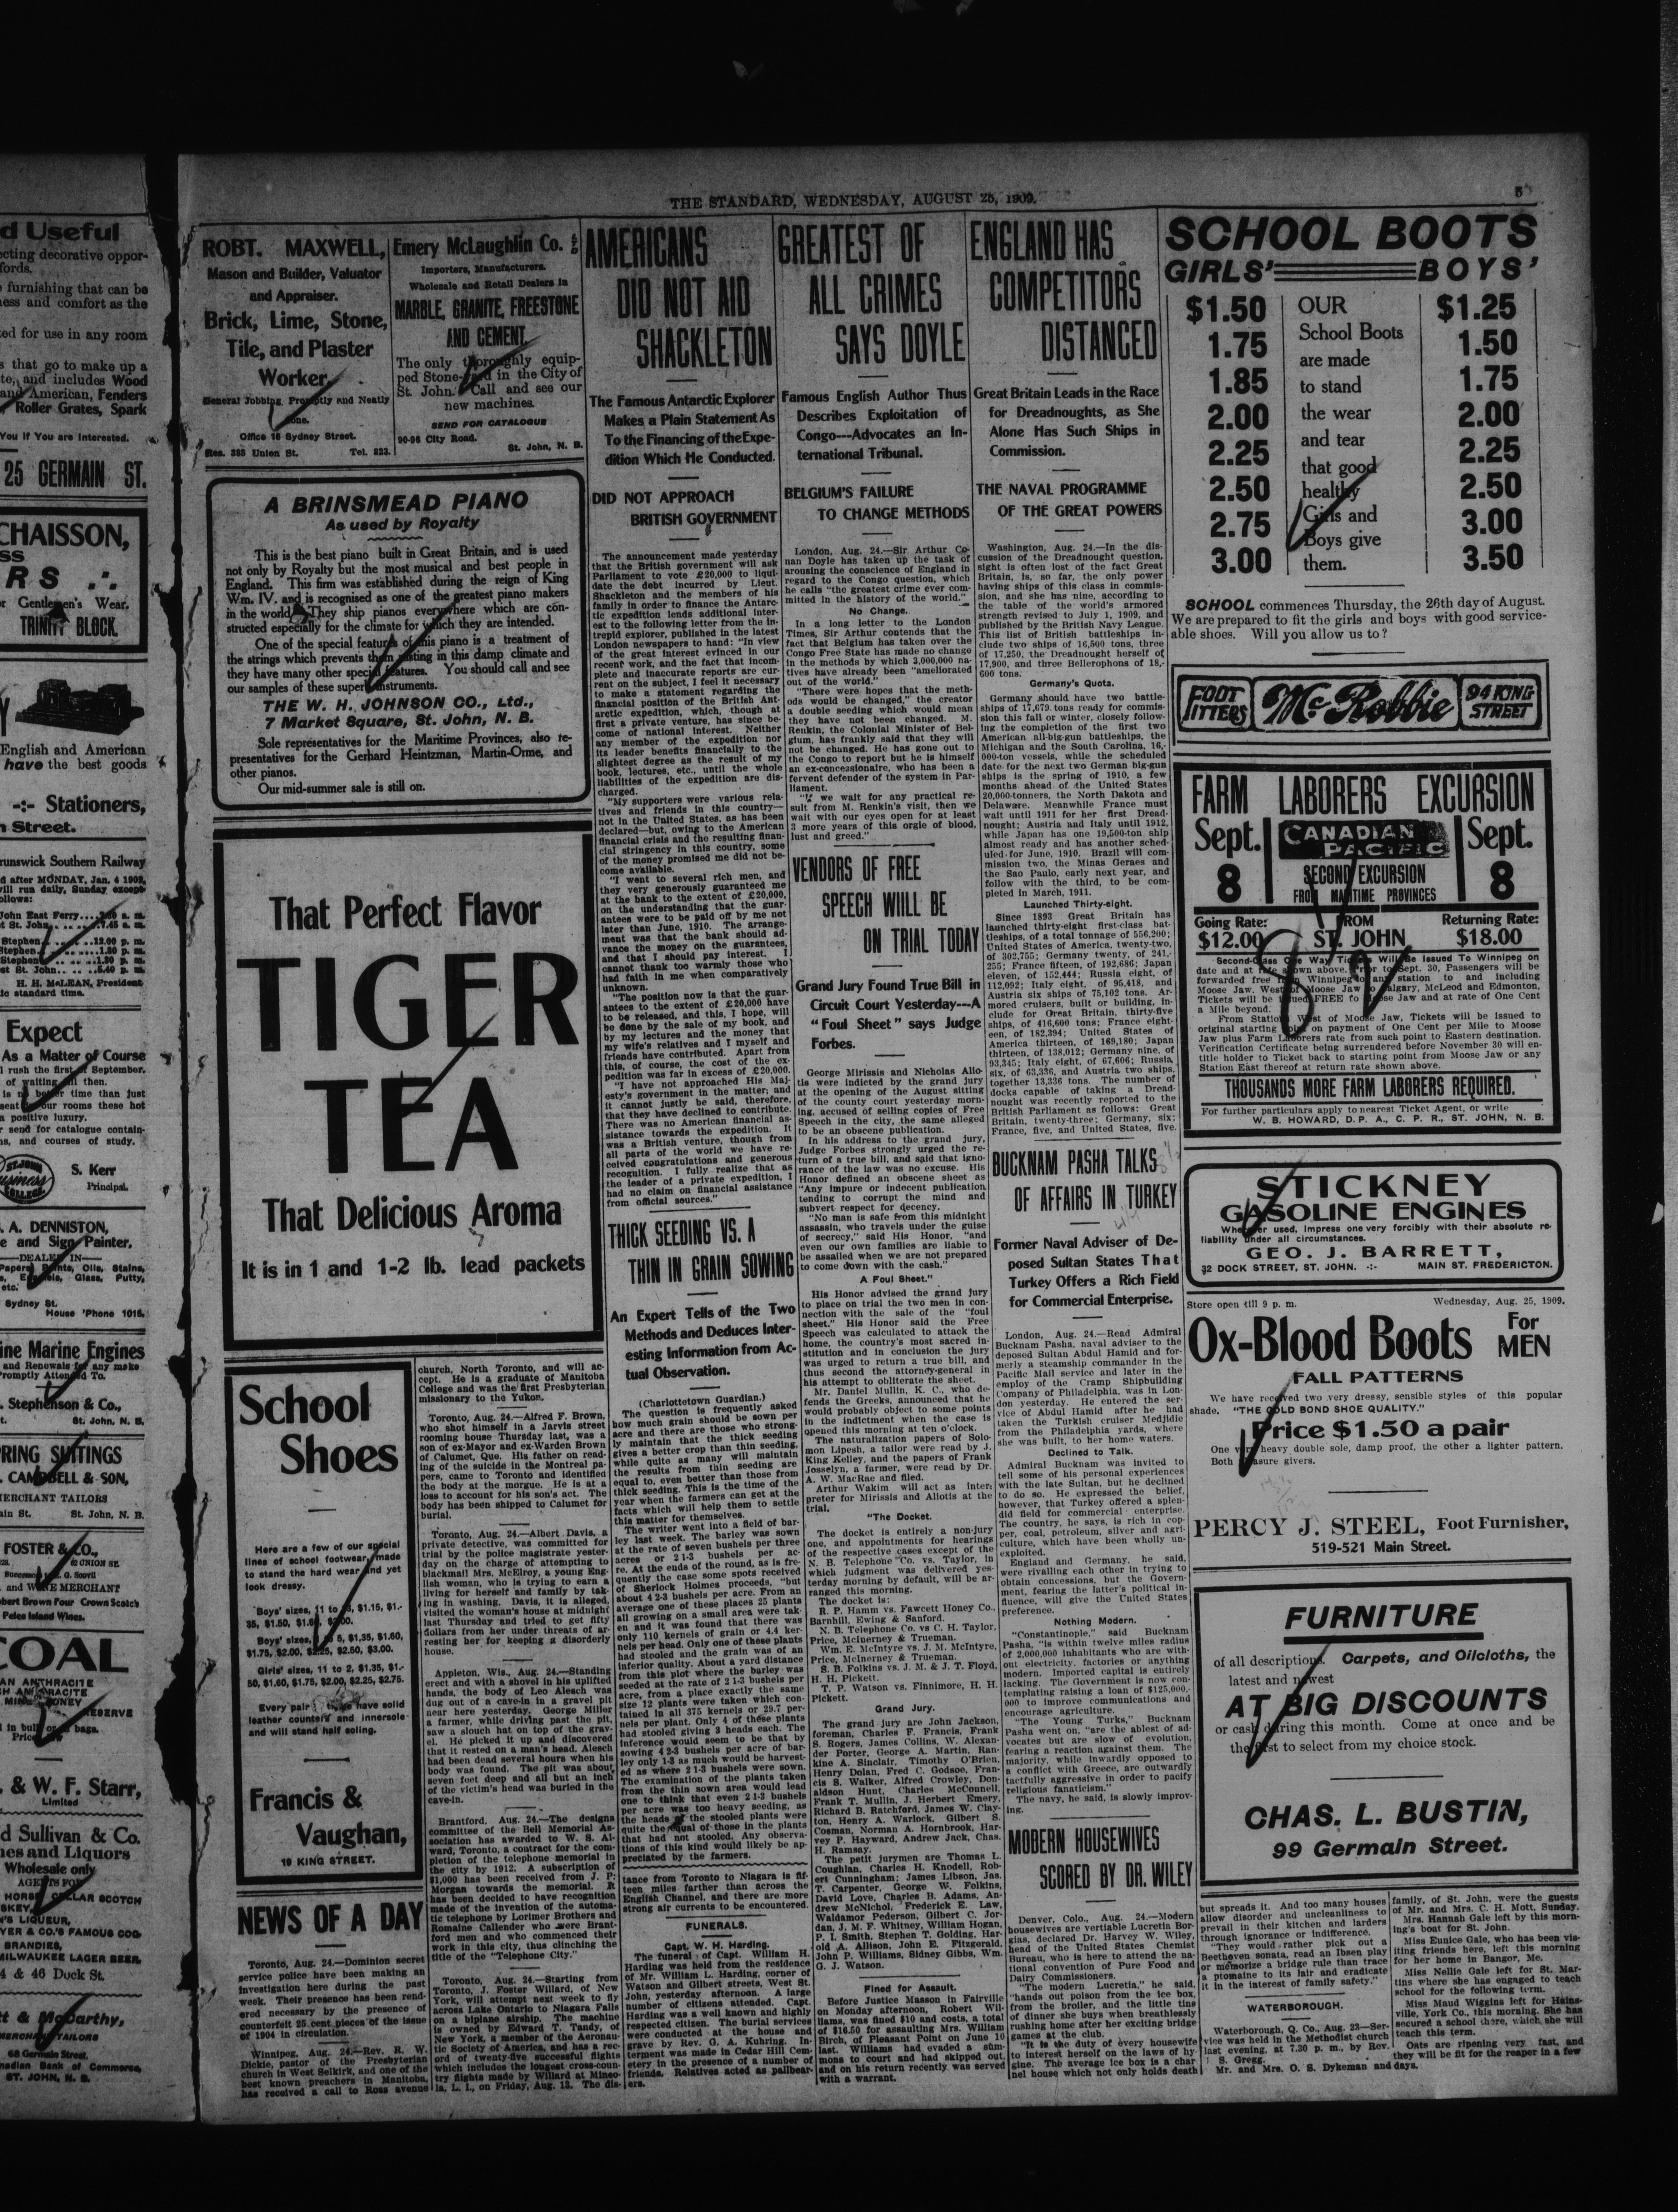 THE STANDARD, WEDNESDAY, AUGUST 25, 1909.
5
d Useful
ecting decorative oppor-
fords.
furnishing that can be
ness and comfort as the
ted for use in any room
s that go to make up a
te, and includes Wood
and American, Fenders
Roller Grates, Spark
You if You are Interested.
25 GERMAIN ST.
CHAISSON,
Gentlemen's Wear.
TRINITY BLOCK.
English and American
have the best goods
-:- Stationers,
n Street.
runswick Southern Railway
d after MONDAY, Jan. 4 1909,
will run daily, Sunday except-
H. H. McLEAN, President
ic standard time.
Expect
As a Matter of Course
S. Kerr
Principal.
. A. DENNISTON,
e and Sign Painter,
Sydney St.
House 'Phone 1016.
ine Marine Engines
and Renewals for any make
Promptly Attended To.
. Stephenson & Co.,
St. John, N. B.
PRING SUITINGS
. CAMPBELL & SON,
MERCHANT TAILORS
St. John, N. B.
FOSTER & CO.,
and WINE MERCHANT
Pelee Island Wines.
COAL
. & W. F. Starr,
Limited
d Sullivan & Co.
nes and Liquors
Wholesale only
AGENTS FOR
BRANDIES,
MILWAUKEE LAGER BEER.
4 & 46 Dock St.
MERCHANT TAILORS
68 Germain Street.
nadian Bank of Commerce,
ST. JOHN, N. B.
ROBT. MAXWELL,
Mason and Builder, Valuator
and Appraiser.
Brick, Lime, Stone,
Tile, and Plaster
Worker.
General Jobbing Promptly and Neatly
done.
Office 16 Sydney Street.
Res. 385 Union St. Tel. 823.
Emery McLaughlin Co.
Importers, Manufacturers.
Wholesale and Retail Dealers in
MARBLE, GRANITE, FREESTONE
AND CEMENT.
The only thoroughly equip-
ped Stone-yard in the City of
St. John. Call and see our
new machines.
SEND FOR CATALOGUE
90-96 City Road. St. John, N. B.
A BRINSMEAD PIANO
As used by Royalty
This is the best piano built in Great Britain, and is used
not only by Royalty but the most musical and best people in
England. This firm was established during the reign of King
Wm. IV. and is recognised as one of the greatest piano makers
in the world. They ship pianos everywhere which are con-
structed especially for the climate for which they are intended.
One of the special features of this piano is a treatment of
the strings which prevents them rusting in this damp climate and
they have many other special features. You should call and see
our samples of these superb instruments.
THE W. H. JOHNSON CO., Ltd.,
7 Market Square, St. John, N. B.
Sole representatives for the Maritime Provinces, also re-
presentatives for the Gerhard Heintzman, Martin-Orme, and
other pianos.
Our mid-summer sale is still on.
That Perfect Flavor
TIGER
TEA
That Delicious Aroma
It is in 1 and 1-2 lb. lead packets
School
Shoes
Here are a few of our special
lines of school footwear, made
to stand the hard wear and yet
look dressy.
Girls' sizes, 11 to 2, $1.35, $1.-
50, $1.60, $1.75, $2.00, $2.25, $2.75.
leather counters and innersole
and will stand half soling.
Francis &
Vaughan,
19 KING STREET.
NEWS OF A DAY
Toronto, Aug. 24.—Dominion secret
service police have been making an
investigation here during the past
week. Their presence has been rend-
ered necessary by the presence of
counterfeit 25 cent pieces of the issue
of 1904 in circulation.
Winnipeg, Aug. 24.—Rev. R. W.
Dickie, pastor of the Presbyterian
church in West Selkirk, and one of the
best known preachers in Manitoba,
has received a call to Ross avenue
church, North Toronto, and will ac-
cept. He is a graduate of Manitoba
College and was the first Presbyterian
missionary to the Yukon.
Toronto, Aug. 24.—Alfred F. Brown,
who shot himself in a Jarvis street
rooming house Thursday last, was a
son of ex-Mayor and ex-Warden Brown
of Calumet, Que. His father on read-
ing of the suicide in the Montreal pa-
pers, came to Toronto and identified
the body at the morgue. He is at a
loss to account for his son's act. The
body has been shipped to Calumet for
burial.
Toronto, Aug. 24.—Albert Davis, a
private detective, was committed for
trial by the police magistrate yester-
day on the charge of attempting to
blackmail Mrs. McElroy, a young Eng-
lish woman, who is trying to earn a
living for herself and family by tak-
ing in washing. Davis, it is alleged,
visited the woman's house at midnight
last Thursday and tried to get fifty
dollars from her under threats of ar-
resting her for keeping a disorderly
house.
Appleton, Wis., Aug. 24.—Standing
erect and with a shovel in his uplifted
hands, the body of Leo Alesch was
dug out of a cave-in in a gravel pit
near here yesterday. George Miller
a farmer, while driving past the pit,
saw a slouch hat on top of the grav-
el. He picked it up and discovered
that it rested on a man's head. Alesch
had been dead several hours when his
body was found. The pit was about
seven feet deep and all but an inch
of the victim's head was buried in the
cave-in.
Brantford, Aug. 24.—The designs
committee of the Bell Memorial As-
sociation has awarded to W. S. Al-
ward, Toronto, a contract for the com-
pletion of the telephone memorial in
the city by 1912. A subscription of
$1,000 has been received from J. P.
Morgan towards the memorial. It
has been decided to have recognition
made of the invention of the automa-
tic telephone by Lorimer Brothers and
Romaine Callender who were Brant-
ford men and who commenced their
work in this city, thus clinching the
title of the "Telephone City."
Toronto, Aug. 24.—Starting from
Toronto, J. Foster Willard, of New
York, will attempt next week to fly
across Lake Ontario to Niagara Falls
on a biplane airship. The machine
is owned by Edward T. Tandy, of
New York, a member of the Aeronau-
tic Society of America, and has a rec-
ord of twenty-five successful flights
which includes the longest cross-coun-
try flights made by Willard at Mineo-
la, L. I., on Friday, Aug. 13. The dis-
AMERICANS
DID NOT AID
SHACKLETON
The Famous Antarctic Explorer
Makes a Plain Statement As
To the Financing of the Expe-
dition Which He Conducted.
DID NOT APPROACH
BRITISH GOVERNMENT
The announcement made yesterday
that the British government will ask
Parliament to vote £20,000 to liqui-
date the debt incurred by Lieut.
Shackleton and the members of his
family in order to finance the Antarc-
tic expedition lends additional inter-
est to the following letter from the in-
trepid explorer, published in the latest
London newspapers to hand: "In view
of the great interest evinced in our
recent work, and the fact that incom-
plete and inaccurate reports are cur-
rent on the subject, I feel it necessary
to make a statement regarding the
financial position of the British Ant-
arctic expedition, which, though at
first a private venture, has since be-
come of national interest. Neither
any member of the expedition nor
its leader benefits financially to the
slightest degree as the result of my
book, lectures, etc., until the whole
liabilities of the expedition are dis-
charged.
"My supporters were various rela-
tives and friends in this country—
not in the United States, as has been
declared—but, owing to the American
financial crisis and the resulting finan-
cial stringency in this country, some
of the money promised me did not be-
come available.
"I went to several rich men, and
they very generously guaranteed me
at the bank to the extent of £20,000,
on the understanding that the guar-
antees were to be paid off by me not
later than June, 1910. The arrange-
ment was that the bank should ad-
vance the money on the guarantees,
and that I should pay interest. I
cannot thank too warmly those who
had faith in me when comparatively
unknown.
"The position now is that the guar-
antees to the extent of £20,000 have
to be released, and this, I hope, will
be done by the sale of my book, and
by my lectures and the money that
my wife's relatives and I myself and
friends have contributed. Apart from
this, of course, the cost of the ex-
pedition was far in excess of £20,000.
"I have not approached His Maj-
esty's government in the matter; and
it cannot justly be said, therefore,
that they have declined to contribute.
There was no American financial as-
sistance towards the expedition. It
was a British venture, though from
all parts of the world we have re-
ceived congratulations and generous
recognition. I fully realize that as
the leader of a private expedition, I
had no claim on financial assistance
from official sources."
THICK SEEDING VS. A
THIN IN GRAIN SOWING
An Expert Tells of the Two
Methods and Deduces Inter-
esting Information from Ac-
tual Observation.
(Charlottetown Guardian.)
The question is frequently asked
how much grain should be sown per
acre and there are those who strong-
ly maintain that the thick seeding
gives a better crop than thin seeding,
while quite as many will maintain
the results from thin seeding are
equal to, even better than those from
thick seeding. This is the time of the
year when the farmers can get at the
facts which will help them to settle
this matter for themselves.
The writer went into a field of bar-
ley last week. The barley was sown
at the rate of seven bushels per three
acres or 2 1-3 bushels per ac-
re. At the ends of the round, as is fre-
quently the case some spots received
of Sherlock Holmes proceeds, "but
about 4 2-3 bushels per acre. From an
average one of these places 25 plants
all growing on a small area were tak-
en and it was found that there was
only 110 kernels of grain or 4.4 ker-
nels per head. Only one of these plants
had stooled and the grain was of an
inferior quality. About a yard distance
from this plot where the barley was
seeded at the rate of 2 1-3 bushels per
acre, from a place exactly the same
size 12 plants were taken which con-
tained in all 375 kernels or 29.7 per-
nels per plant. Only 4 of these plants
had stooled giving 3 heads each. The
inference would seem to be that by
sowing 4 2-3 bushels per acre of bar-
ley only 1-3 as much would be harvest-
ed as where 2 1-3 bushels were sown.
The examination of the plants taken
from the thin sown area would lead
one to think that even 2 1-3 bushels
per acre was too heavy seeding, as
the heads of the stooled plants were
quite the equal of those in the plants
that had not stooled. Any observa-
tions of this kind would likely be ap-
preciated by the farmers.
tance from Toronto to Niagara is fif-
teen miles farther than across the
English Channel, and there are more
strong air currents to be encountered.
FUNERALS.
Capt. W. H. Harding.
The funeral of Capt. William H.
Harding was held from the residence
of Mr. William L. Harding, corner of
Watson and Gilbert streets, West St.
John, yesterday afternoon. A large
number of citizens attended. Capt.
Harding was a well known and highly
respected citizen. The burial services
were conducted at the house and
grave by Rev. G. A. Kuhring. In-
terment was made in Cedar Hill Cem-
etery in the presence of a number of
friends. Relatives acted as pallbear-
ers.
GREATEST OF
ALL CRIMES
SAYS DOYLE
Famous English Author Thus
Describes Exploitation of
Congo---Advocates an In-
ternational Tribunal.
BELGIUM'S FAILURE
TO CHANGE METHODS
London, Aug. 24.—Sir Arthur Co-
nan Doyle has taken up the task of
arousing the conscience of England in
regard to the Congo question, which
he calls "the greatest crime ever com-
mitted in the history of the world."
No Change.
In a long letter to the London
Times, Sir Arthur contends that the
fact that Belgium has taken over the
Congo Free State has made no change
in the methods by which 3,000,000 na-
tives have already been "ameliorated
out of the world."
"There were hopes that the meth-
ods would be changed," the creator
a double seeding which would mean
they have not been changed. M.
Renkin, the Colonial Minister of Bel-
gium, has frankly said that they will
not be changed. He has gone out to
the Congo to report but he is himself
an ex-concessionaire, who has been a
fervent defender of the system in Par-
liament.
"If we wait for any practical re-
sult from M. Renkin's visit, then we
wait with our eyes open for at least
3 more years of this orgie of blood,
lust and greed."
VENDORS OF FREE
SPEECH WIILL BE
ON TRIAL TODAY
Grand Jury Found True Bill in
Circuit Court Yesterday---A
"Foul Sheet" says Judge
Forbes.
George Mirissis and Nicholas Alio-
tis were indicted by the grand jury
at the opening of the August sitting
of the county court yesterday morn-
ing, accused of selling copies of Free
Speech in the city, the same alleged
to be an obscene publication.
In his address to the grand jury,
Judge Forbes strongly urged the re-
turn of a true bill, and said that igno-
rance of the law was no excuse. His
Honor defined an obscene sheet as
"Any impure or indecent publication,
tending to corrupt the mind and
subvert respect for decency.
"No man is safe from this midnight
assassin, who travels under the guise
of secrecy," said His Honor, "and
even our own families are liable to
be assailed when we are not prepared
to come down with the cash."
A Foul Sheet."
His Honor advised the grand jury
to place on trial the two men in con-
nection with the sale of the "foul
sheet." His Honor said the Free
Speech was calculated to attack the
home, the country's most sacred in-
stitution and in conclusion the jury
was urged to return a true bill, and
thus second the attorney-general in
his attempt to obliterate the sheet.
Mr. Daniel Mullin, K. C., who de-
fends the Greeks, announced that he
would probably object to some points
in the indictment when the case is
opened this morning at ten o'clock.
The naturalization papers of Solo-
mon Lipesh, a tailor were read by J.
King Kelley, and the papers of Frank
Josselyn, a farmer, were read by Dr.
A. W. MacRae and filed.
Arthur Wakim will act as inter-
preter for Mirissis and Aliotis at the
trial.
"The Docket.
The docket is entirely a non-jury
one, and appointments for hearings
of the respective cases except of the
N. B. Telephone Co. vs. Taylor, in
which judgment was delivered yes-
terday morning by default, will be ar-
ranged this morning.
The docket is:
R. P. Hamm vs. Fawcett Honey Co.,
Barnhill, Ewing & Sanford.
N. B. Telephone Co. vs C. H. Taylor,
Price, McInerney & Trueman.
Wm. E. McIntyre vs. J. M. McIntyre,
Price, McInerney & Trueman.
S. B. Folkins vs. J. M. & J. T. Floyd,
H. H. Pickett.
T. P. Watson vs. Finnimore, H. H.
Pickett.
Grand Jury.
The grand jury are John Jackson,
foreman, Charles F. Francis, Frank
S. Rogers, James Collins, W. Alexan-
der Porter, George A. Martin, Ran-
kine A. Sinclair, Timothy O'Brien,
Henry Dolan, Fred C. Godsoe, Fran-
cis S. Walker, Alfred Crowley, Don-
aldson Hunt, Charles McConnell,
Frank T. Mullin, J. Herbert Emery,
Richard B. Ratchford, James W. Clay-
ton, Henry A. Warlock, Gilbert S.
Cosman, Norman A. Hornbrook, Har-
vey P. Hayward, Andrew Jack, Chas.
H. Ramsay.
The petit jurymen are Thomas L.
Coughlan, Charles H. Knodell, Rob-
ert Cunningham; James Libson, Jas.
T. Carpenter, George W. Folkins,
David Love, Charles B. Adams, An-
drew McNichol, Frederick E. Law,
Waldamor Pederson, Gilbert C. Jor-
dan, J. M. F. Whitney, William Hogan,
P. I. Smith, Stephen T. Golding, Har-
old A. Allison, John E. Fitzgerald,
John P. Williams, Sidney Gibbs, Wm.
G. J. Watson.
Fined for Assault.
Before Justice Masson in Fairville
on Monday afternoon, Robert Wil-
liams, was fined $10 and costs, a total
of $16.50 for assaulting Mrs. William
Birch, of Pleasant Point on June 10
last. Williams had evaded a sum-
mons to court and had skipped out,
and on his return recently was served
with a warrant.
ENGLAND HAS
COMPETITORS
DISTANCED
Great Britain Leads in the Race
for Dreadnoughts, as She
Alone Has Such Ships in
Commission.
THE NAVAL PROGRAMME
OF THE GREAT POWERS
Washington, Aug. 24.—In the dis-
cussion of the Dreadnought question,
sight is often lost of the fact Great
Britain, is, so far, the only power
having ships of this class in commis-
sion, and she has nine, according to
the table of the world's armored
strength revised to July 1, 1909, and
published by the British Navy League.
This list of British battleships in-
clude two ships of 16,500 tons, three
of 17,250, the Dreadnought herself of
17,900, and three Bellerophons of 18,-
600 tons.
Germany's Quota.
Germany should have two battle-
ships of 17,679 tons ready for commis-
sion this fall or winter, closely follow-
ing the completion of the first two
American all-big-gun battleships, the
Michigan and the South Carolina, 16,-
000-ton vessels, while the scheduled
date for the next two German big-gun
ships is the spring of 1910, a few
months ahead of the United States
20,000-tonners, the North Dakota and
Delaware. Meanwhile France must
wait until 1911 for her first Dread-
nought; Austria and Italy until 1912,
while Japan has one 19,500-ton ship
almost ready and has another sched-
uled for June, 1910. Brazil will com-
mission two, the Minas Geraes and
the Sao Paulo, early next year, and
follow with the third, to be com-
pleted in March, 1911.
Launched Thirty-eight.
Since 1893 Great Britain has
launched thirty-eight first-class bat-
tleships, of a total tonnage of 556,200;
United States of America, twenty-two,
of 302,755; Germany twenty, of 241,-
255; France fifteen, of 192,686; Japan
eleven, of 152,444; Russia eight, of
112,092; Italy eight, of 95,418, and
Austria six ships of 75,102 tons. Ar-
mored cruisers, built or building, in-
clude for Great Britain, thirty-five
ships, of 416,600 tons; France eight-
een, of 182,394; United States of
America thirteen, of 169,180; Japan
thirteen, of 138,012; Germany nine, of
93,345; Italy eight, of 67,606; Russia,
six, of 63,336, and Austria two ships,
together 13,336 tons. The number of
docks capable of taking a Dread-
nought was recently reported to the
British Parliament as follows: Great
Britain, twenty-three; Germany, six;
France, five, and United States, five.
BUCKNAM PASHA TALKS
OF AFFAIRS IN TURKEY
Former Naval Adviser of De-
posed Sultan States That
Turkey Offers a Rich Field
for Commercial Enterprise.
London, Aug. 24.—Read Admiral
Bucknam Pasha, naval adviser to the
deposed Sultan Abdul Hamid and for-
merly a steamship commander in the
Pacific Mail service and later in the
employ of the Cramp Shipbuilding
Company of Philadelphia, was in Lon-
don yesterday. He entered the ser-
vice of Abdul Hamid after he had
taken the Turkish cruiser Medjidie
from the Philadelphia yards, where
she was built, to her home waters.
Declined to Talk.
Admiral Bucknam was invited to
tell some of his personal experiences
with the late Sultan, but he declined
to do so. He expressed the belief,
however, that Turkey offered a splen-
did field for commercial enterprise.
The country, he says, is rich in cop-
per, coal, petroleum, silver and agri-
culture, which have been wholly un-
exploited.
England and Germany, he said,
were rivalling each other in trying to
obtain concessions, but the Govern-
ment, fearing the latter's political in-
fluence, will give the United States
preference.
Nothing Modern.
"Constantinople," said Bucknam
Pasha, "is within twelve miles radius
of 2,000,000 inhabitants who are with-
out electricity, factories or anything
modern. Imported capital is entirely
lacking. The Government is now con-
templating raising a loan of $125,000,-
000 to improve communications and
encourage agriculture.
"The Young Turks," Bucknam
Pasha went on, "are the ablest of ad-
vocates but are slow of evolution,
fearing a reaction against them. The
majority, while inwardly opposed to
a conflict with Greece, are outwardly
tactfully aggressive in order to pacify
religious fanaticism."
The navy, he said, is slowly improv-
ing.
MODERN HOUSEWIVES
SCORED BY DR. WILEY
Denver, Colo., Aug. 24.—Modern
housewives are vertiable Lucretia Bor-
gias, declared Dr. Harvey W. Wiley,
head of the United States Chemist
Bureau, who is here to attend the na-
tional convention of Pure Food and
Dairy Commissioners.
"The modern Lucretia," he said,
"hands out poison from the ice box,
from the broiler, and the little tins
of dinner she buys when breathlessly
rushing home after her exciting bridge
games at the club.
"It is the duty of every housewife
to interest herself on the laws of hy-
gine. The average ice box is a char-
nel house which not only holds death
but spreads it. And too many houses
allow disorder and uncleanliness to
prevail in their kitchen and larders
through ignorance or indifference.
"They would rather pick out a
Beethoven sonata, read an Ibsen play
or memorize a bridge rule than trace
a ptomaine to its lair and eradicate
it in the interest of family safety."
WATERBOROUGH.
Waterborough, Q. Co., Aug. 23—Ser-
vice was held in the Methodist church
last evening, at 7.30 p. m., by Rev.
S. Gregg.
Mr. and Mrs. O. S. Dykeman and
family, of St. John, were the guests
of Mr. and Mrs. C. H. Mott, Sunday.
Mrs. Hannah Gale left by this morn-
ing's boat for St. John.
Miss Eunice Gale, who has been vis-
iting friends here, left this morning
for her home in Bangor, Me.
Miss Nellie Gale left for St. Mar-
tins where she has engaged to teach
school for the following term.
Miss Maud Wiggins left for Hains-
ville, York Co., this morning. She has
secured a school there, which she will
teach this term.
Oats are ripening very fast, and
they will be fit for the reaper in a few
days.
SCHOOL BOOTS
GIRLS' BOYS'
$1.50
1.75
1.85
2.00
2.25
2.50
2.75
3.00
OUR
School Boots
are made
to stand
the wear
and tear
that good
healthy
Girls and
Boys give
them.
$1.25
1.50
1.75
2.00
2.25
2.50
3.00
3.50
SCHOOL commences Thursday, the 26th day of August.
We are prepared to fit the girls and boys with good service-
able shoes. Will you allow us to?
FOOT FITTERS
McRobbie
94 KING STREET
FARM LABORERS EXCURSION
Sept. 8
CANADIAN PACIFIC
SECOND EXCURSION
FROM MARITIME PROVINCES
Sept. 8
Going Rate: $12.00
FROM ST. JOHN
Returning Rate: $18.00
Second-Class One Way Tickets Will be Issued To Winnipeg on
date and at rate shown above. Prior to Sept. 30, Passengers will be
forwarded free from Winnipeg to any station to and including
Moose Jaw. West of Moose Jaw to Calgary, McLeod and Edmonton,
Tickets will be issued FREE to Moose Jaw and at rate of One Cent
a Mile beyond.
From Stations West of Moose Jaw, Tickets will be issued to
original starting point on payment of One Cent per Mile to Moose
Jaw plus Farm Laborers rate from such point to Eastern destination.
Verification Certificate being surrendered before November 30 en-
title holder to Ticket back to starting point from Moose Jaw or any
Station East thereof at return rate shown above.
THOUSANDS MORE FARM LABORERS REQUIRED.
For further particulars apply to nearest Ticket Agent, or write
W. B. HOWARD, D. P. A., C. P. R., ST. JOHN, N. B.
STICKNEY
GASOLINE ENGINES
Wherever used, impress one very forcibly with their absolute re-
liability under all circumstances.
GEO. J. BARRETT,
32 DOCK STREET, ST. JOHN. -:- MAIN ST. FREDERICTON.
Store open till 9 p. m. Wednesday, Aug. 25, 1909.
Ox-Blood Boots For MEN
FALL PATTERNS
We have received two very dressy, sensible styles of this popular
shade. "THE GOLD BOND SHOE QUALITY."
Price $1.50 a pair
One very heavy double sole, damp proof, the other a lighter pattern.
Both pleasure givers.
PERCY J. STEEL, Foot Furnisher,
519-521 Main Street.
FURNITURE
of all descriptions. Carpets, and Oilcloths, the
latest and newest
AT BIG DISCOUNTS
or cash during this month. Come at once and be
the first to select from my choice stock.
CHAS. L. BUSTIN,
99 Germain Street.